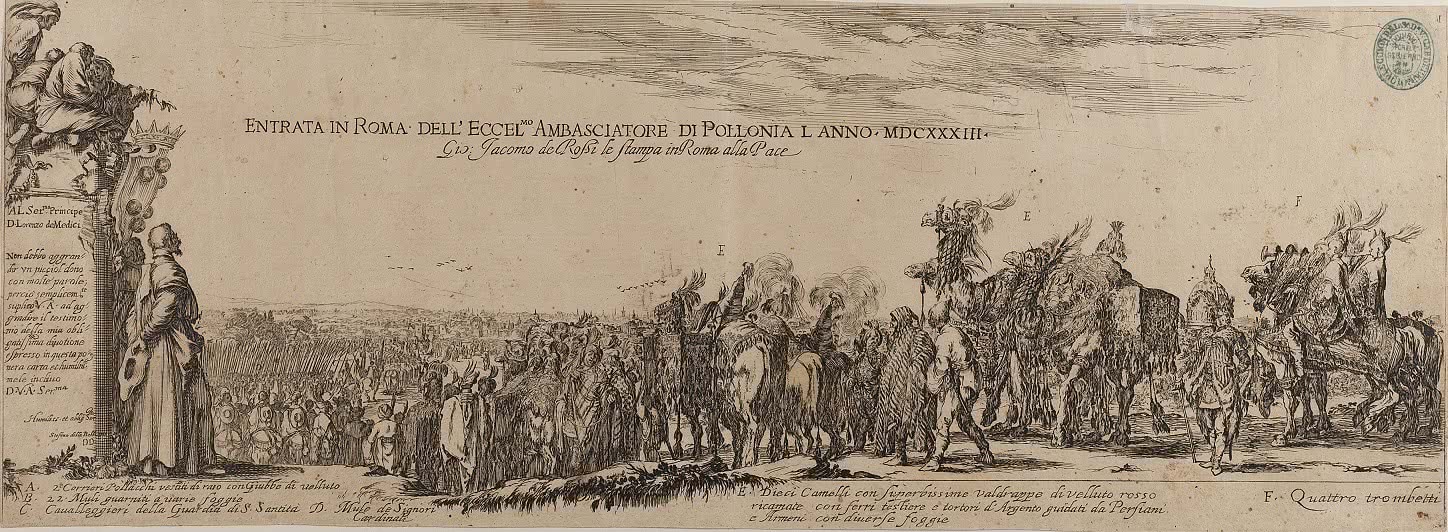 ENTRATA IN ROMA DELL' ECCEL.MO AMBASCIATORE DI POLLONIA L ANNO MDCXXXIII
Gio: Jacomo de Rossi le stampa in Roma alla Pace
AL Ser.mo Principe
D. Lorenzo de Medici
Non debbo aggran-
dir vn picciol dono
con molte parole;
percio semplicem.te
suplico V. A. ad ag-
gradire il testimo-
nio della mia obli-
gatissima diuotione
espresso in questa po-
uera carta et humil-
mente inchino
D. V. A. Ser.ma
E
E
F
A. 2 Corrieri Pollacchi vestiti di raso con Giubbe di velluto
B. 22 Muli guarniti a uarie foggie
C. Cavalleggieri della Guardia di S. Santità D. Mule de Signori
Cardinali
E. Dieci Camelli con superbissime valdrappe di velluto rosso
ricamate con ferri testiere e tortori d'Argento guidati da Persiani
e Armeni con diverse foggie
F. Quattro trombetti